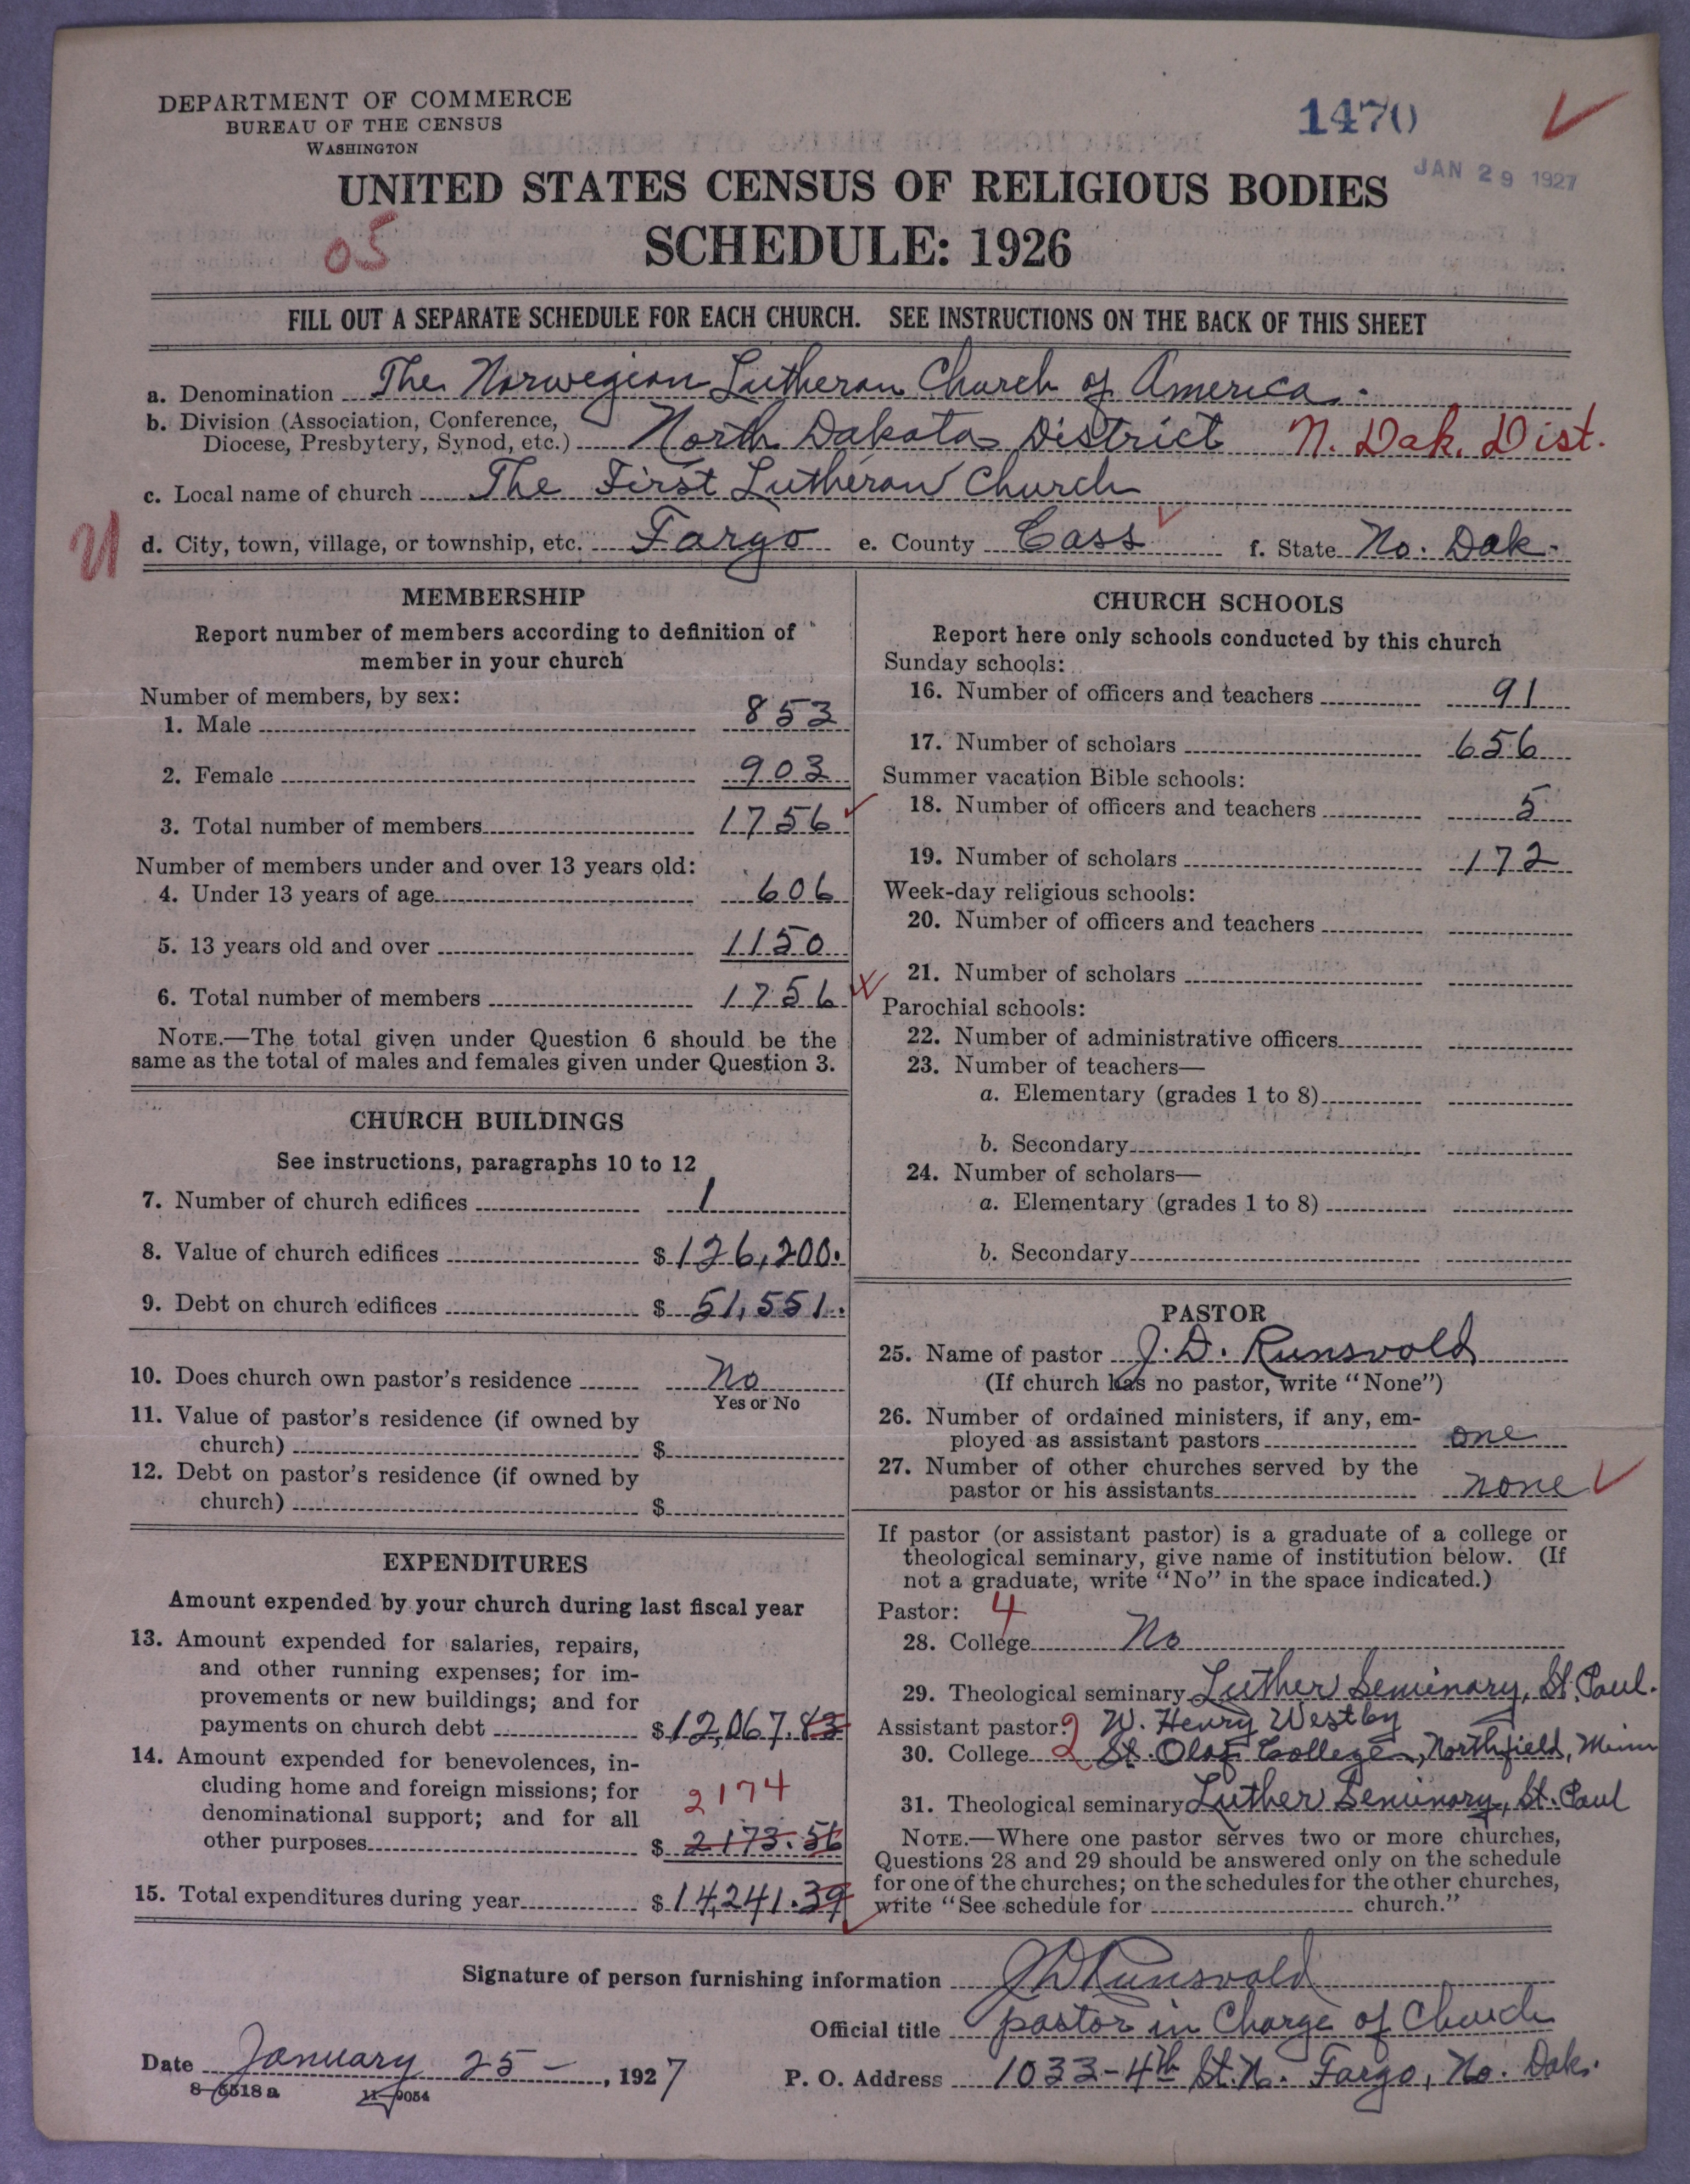 DEPARTMENT OF COMMERCE
BUREAU OF THE CENSUS
WASHINGTON
1470
JAN 29 1927
UNITED STATES CENSUS OF RELIGIOUS BODIES
05
SCHEDULE: 1926
FILL OUT A SEPARATE SCHEDULE FOR EACH CHURCH. SEE INSTRUCTIONS ON THE BACK OF THIS SHEET
a. Denomination The Norwegian Lutheran Church of America.
b. Division (Association, Conference,
Diocese, Presbytery, Synod, etc.) North Dakota District N. Dak. Dist.
c. Local name of church The First Lutheran Church
d. City, town, village, or township, etc. Fargo e. County Cass f. State No. Dak.
MEMBERSHIP
Report number of members according to definition of
member in your church
Number of members, by sex:
1. Male 853
2. Female 903
3. Total number of members 1756
Number of members under and over 13 years old:
4. Under 13 years of age 606
5. 13 years old and over 1150
6. Total number of members 1756
NOTE.—The total given under Question 6 should be the
same as the total of males and females given under Question 3.
CHURCH BUILDINGS
See instructions, paragraphs 10 to 12
7. Number of church edifices 1
8. Value of church edifices $126,200.
9. Debt on church edifices $51,551.
10. Does church own pastor's residence No
Yes or No
11. Value of pastor's residence (if owned by
church) $
12. Debt on pastor's residence (if owned by
church) $
EXPENDITURES
Amount expended by your church during last fiscal year
13. Amount expended for salaries, repairs,
and other running expenses; for im-
provements or new buildings; and for
payments on church debt $12,067.83
14. Amount expended for benevolences, in-
cluding home and foreign missions; for
denominational support; and for all
2174
other purposes $2173.56
15. Total expenditures during year $14,241.39
CHURCH SCHOOLS
Report here only schools conducted by this church
Sunday schools:
16. Number of officers and teachers 91
17. Number of scholars 656
Summer vacation Bible schools:
18. Number of officers and teachers 5
19. Number of scholars 172
Week-day religious schools:
20. Number of officers and teachers
21. Number of scholars
Parochial schools:
22. Number of administrative officers
23. Number of teachers—
a. Elementary (grades 1 to 8)
b. Secondary
24. Number of scholars—
a. Elementary (grades 1 to 8)
b. Secondary
PASTOR
25. Name of pastor J. D. Runsvold
(If church has no pastor, write "None")
26. Number of ordained ministers, if any, em-
ployed as assistant pastors one
27. Number of other churches served by the
pastor or his assistants none
If pastor (or assistant pastor) is a graduate of a college or
theological seminary, give name of institution below. (If
not a graduate, write "No" in the space indicated.)
Pastor: 4
28. College No
29. Theological seminary Luther Seminary, St. Paul.
Assistant pastor: 2 W. Henry Westby
30. College 2 St. Olaf College, Northfield, Minn
31. Theological seminary Luther Seminary, St. Paul
NOTE.—Where one pastor serves two or more churches,
Questions 28 and 29 should be answered only on the schedule
for one of the churches; on the schedules for the other churches,
write "See schedule for church."
Signature of person furnishing information J D Runsvold
Official title pastor in Charge of Church
Date January 25 - , 1927
P. O. Address 1033-4th St. N. Fargo, No. Dak.
8-5518a 11-9054